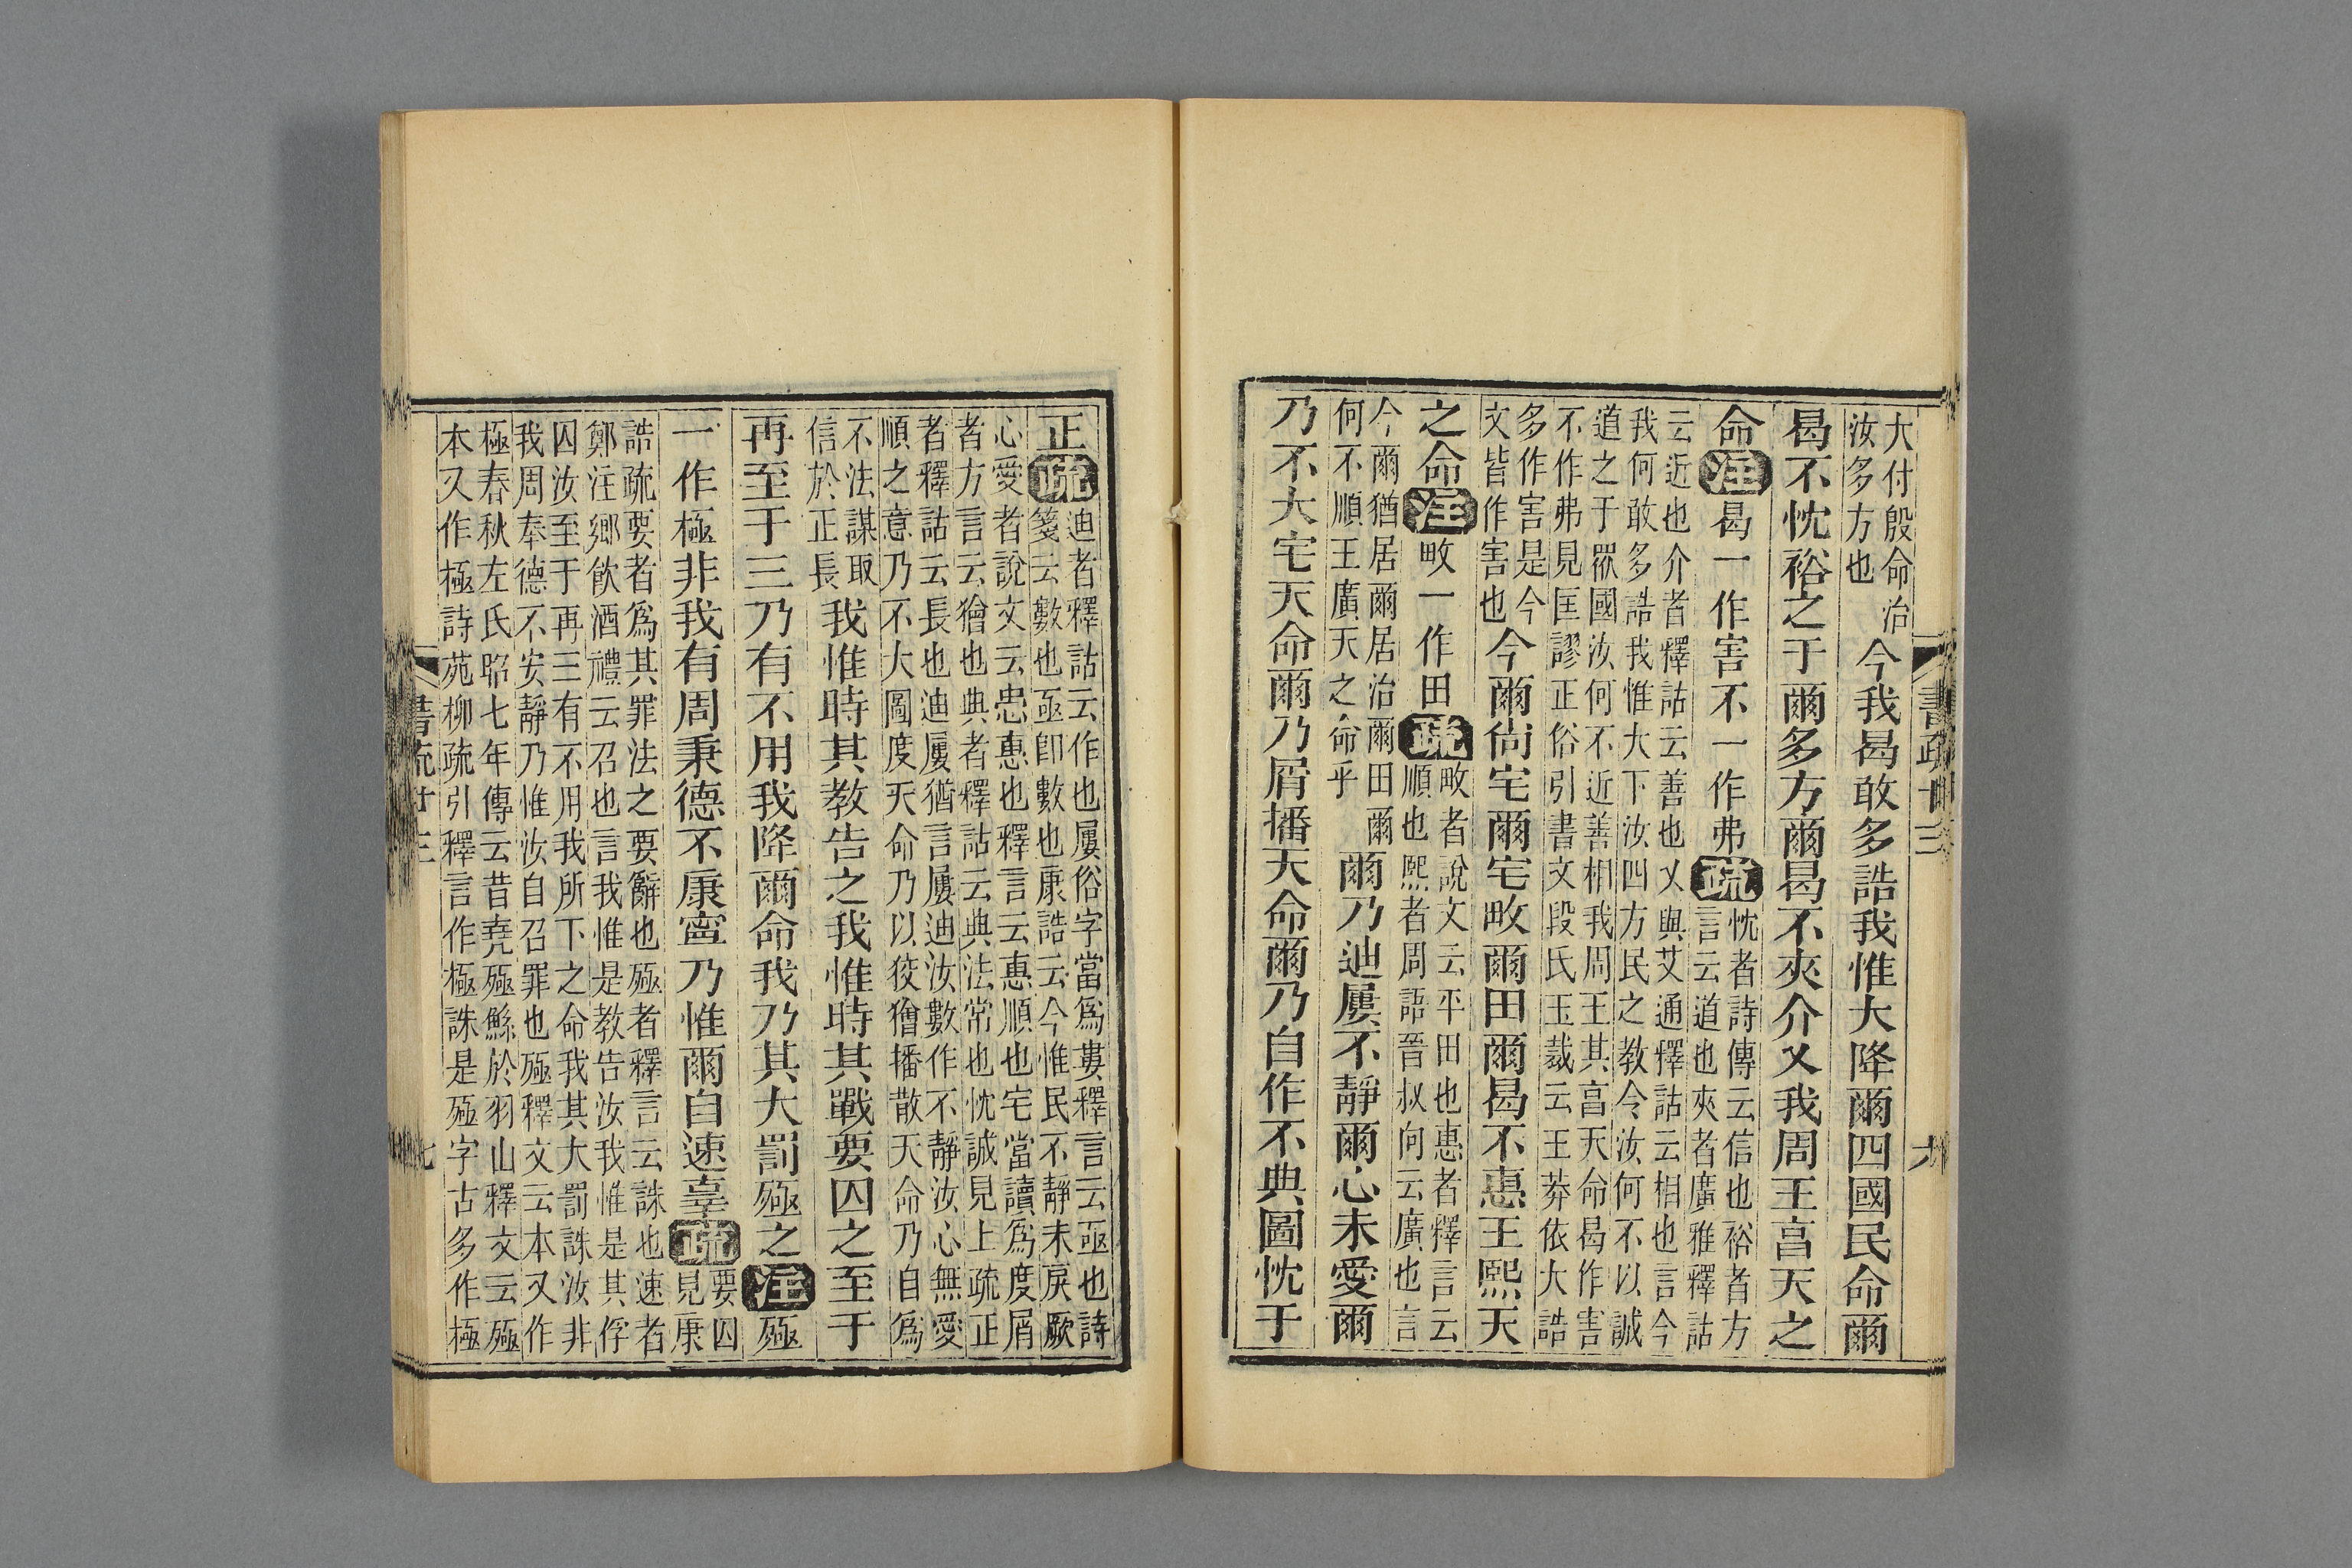 書疏廿三
六
大付殷命治
汝多方也
今我曷敢多誥我惟大降爾四國民命爾
曷不忱裕之于爾多方爾曷不夾介乂我周王亯天之
命注曷一作害不一作弗疏
忱者詩傳云信也裕者方
言云道也夾者廣雅釋詁
云近也介者釋詁云善也乂與艾通釋詁云相也言今
我何敢多誥我惟大下汝四方民之教令汝何不以誠
道之于眾國汝何不近善相我周王其亯天命曷作害
不作弗見匡謬正俗引書文段氏玉裁云王莽依大誥
多作害是今
文皆作害也
今爾尙宅爾宅畋爾田爾曷不惠王熙天
之命注畋一作田疏
畋者說文云平田也惠者釋言云
順也熙者周語晉叔向云廣也言
今爾猶居爾居治爾田爾
何不順王廣天之命乎
爾乃迪屢不靜爾心未愛爾
乃不大宅天命爾乃屑播天命爾乃自作不典圖忱于
正疏
迪者釋詁云作也屢俗字當爲婁釋言云亟也詩
箋云數也亟卽數也康誥云今惟民不靜未戾厥
心愛者說文云㤅惠也釋言云惠順也宅當讀爲度屑
者方言云獪也典者釋詁云典法常也忱誠見上疏正
者釋詁云長也迪屢猶言屢迪汝數作不靜汝心無愛
順之意乃不大圖度天命乃以狡獪播散天命乃自爲
不法謀取
信於正長
我惟時其教告之我惟時其戰要囚之至于
再至于三乃有不用我降爾命我乃其大罰殛之注殛
一作極非我有周秉德不康寧乃惟爾自速辜疏
要囚
見康
誥疏要者爲其罪法之要辭也殛者釋言云誅也速者
鄭注鄉飲酒禮云召也言我惟是教告汝我惟是其俘
囚汝至于再三有不用我所下之命我其大罰誅汝非
我周奉德不安靜乃惟汝自召罪也殛釋文云本又作
極春秋左氏昭七年傳云昔堯殛鯀於羽山釋文云殛
本又作極詩菀柳疏引釋言作極誅是殛字古多作極
書疏廿三
七